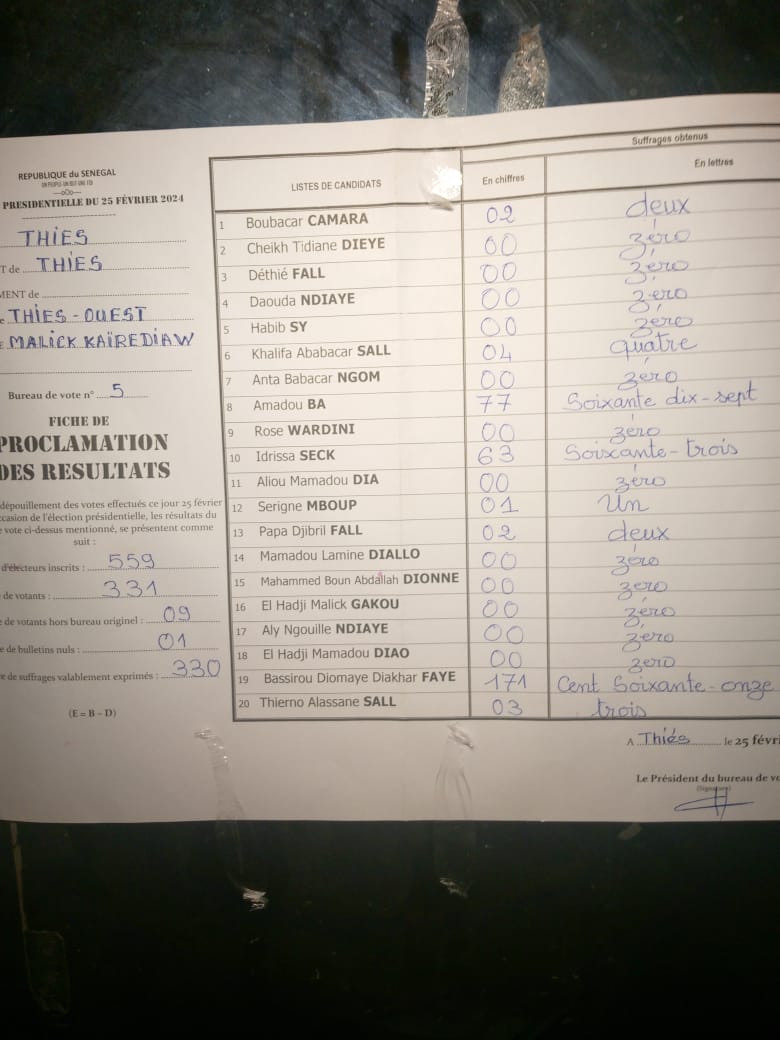 REPUBLIQUE du SENEGAL
UN PEUPLE-UN BUT-UNE FOI
---oOo---
PRESIDENTIELLE DU 25 FÉVRIER 2024
THIES
T de THIES
MENT de
THIES - OUEST
MALICK KAÏREDIAW
Bureau de vote n° 5
FICHE DE
PROCLAMATION
DES RESULTATS
dépouillement des votes effectués ce jour 25 février
ccasion de l'élection présidentielle, les résultats du
e vote ci-dessus mentionné, se présentent comme
suit :
d'électeurs inscrits : 559
de votants : 331
e de votants hors bureau originel : 09
e de bulletins nuls : 01
re de suffrages valablement exprimés : 330
(E = B – D)
Suffrages obtenus
LISTES DE CANDIDATS En chiffres En lettres
1 Boubacar CAMARA 02 deux
2 Cheikh Tidiane DIEYE 00 zéro
3 Déthié FALL 00 zéro
4 Daouda NDIAYE 00 zéro
5 Habib SY 00 zéro
6 Khalifa Ababacar SALL 04 quatre
7 Anta Babacar NGOM 00 zéro
8 Amadou BA 77 Soixante dix-sept
9 Rose WARDINI 00 zéro
10 Idrissa SECK 63 Soixante-trois
11 Aliou Mamadou DIA 00 zéro
12 Serigne MBOUP 01 Un
13 Papa Djibril FALL 02 deux
14 Mamadou Lamine DIALLO 00 zéro
15 Mahammed Boun Abdallah DIONNE 00 zéro
16 El Hadji Malick GAKOU 00 zéro
17 Aly Ngouille NDIAYE 00 zéro
18 El Hadji Mamadou DIAO 00 zero
19 Bassirou Diomaye Diakhar FAYE 171 Cent Soixante-onze
20 Thierno Alassane SALL 03 trois
A Thiés le 25 févri
Le Président du bureau de vo
(Signature)